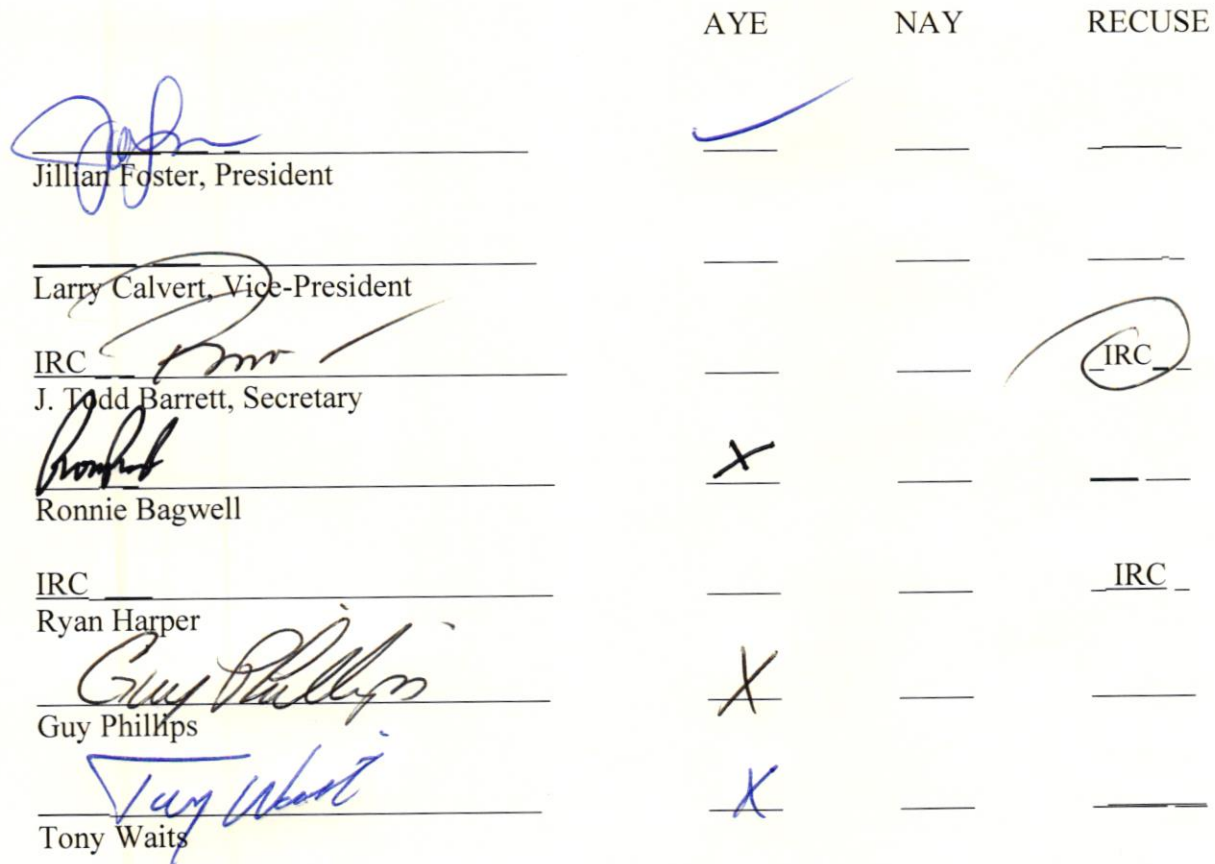 AYE NAY RECUSE
Jillian Foster, President
Larry Calvert, Vice-President
IRC IRC
J. Todd Barrett, Secretary
X
Ronnie Bagwell
IRC IRC
Ryan Harper
Guy Phillips X
Guy Phillips
Tony Waits X
Tony Waits